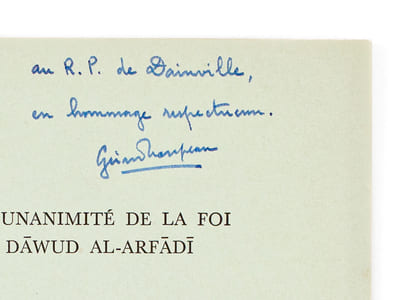 au R. P. de Dainville,
en hommage respectueux.
Gérard Troupeau
UNANIMITÉ DE LA FOI
DĀWUD AL-ARFĀDĪ